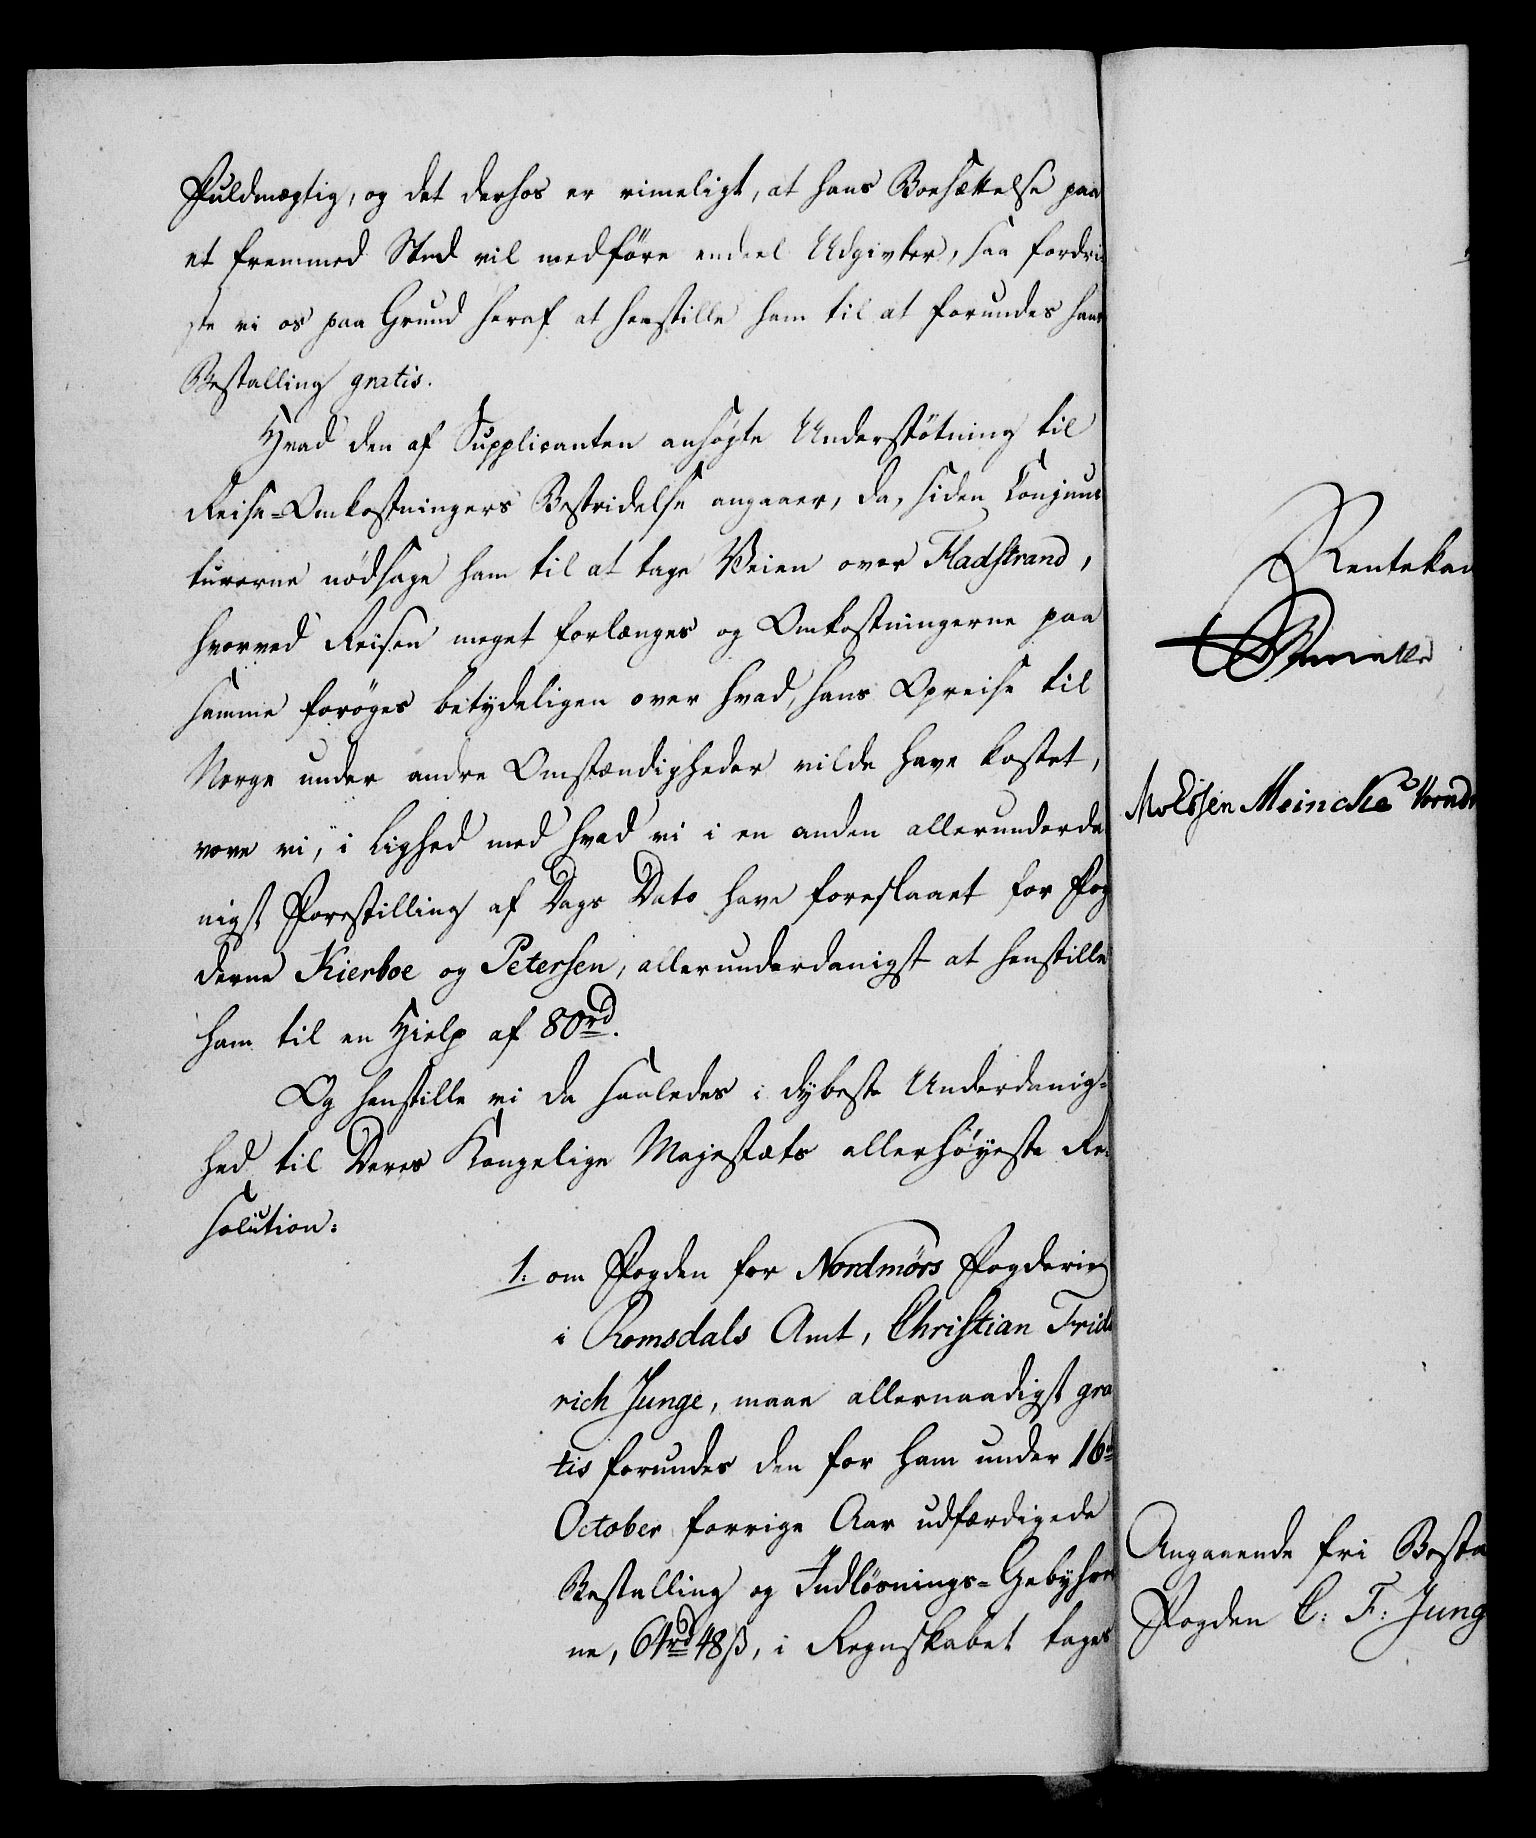 Fuldmægtig, og det derhos er rimeligt, at hans Bosættelse paa
et fremmed Sted vil medföre endeel Udgivter, saa fordri
ste vi os paa Grund heraf at henstille ham til at forundes hans
Bestalling gratis.
Hvad den af Supplicanten ansögte Understötning til
Reise-Omkostningers Bestridelse angaaer, da, siden Conjunc
turerne nödsage ham til at tage Veien over Fladstrand,
hvorved Reisen meget forlænges og Omkostningerne paa
samme foröges betydeligen over hvad, hans Opreise til
Norge under andre Omstændigheder vilde have kostet,
vove vi, i Lighed med hvad vi i en anden allerunderda
nigst Forestilling af Dags Dato have foreslaaet for Fog
derne Kierboe og Petersen, allerunderdanigst at henstille
ham til en Hielp af 80rd.
Og henstille vi da saaledes i dybeste Underdanig-
hed til Deres Kongelige Majestæts allerhöyeste Re-
solution:
1. om Fogden for Nordmörs Fogderie
i Romsdals Amt, Christian Fride
rich Junge, maae allernaadigst gra
tis forundes den for ham under 16de
October forrige Aar udfærdigede
Bestalling og Indlösnings-Gebyhrer
ne, 64rd 48ß, i Regnskabet tages
Rentekam
Meincke
Angaaende fri Besta
Fogden C: F: Jung